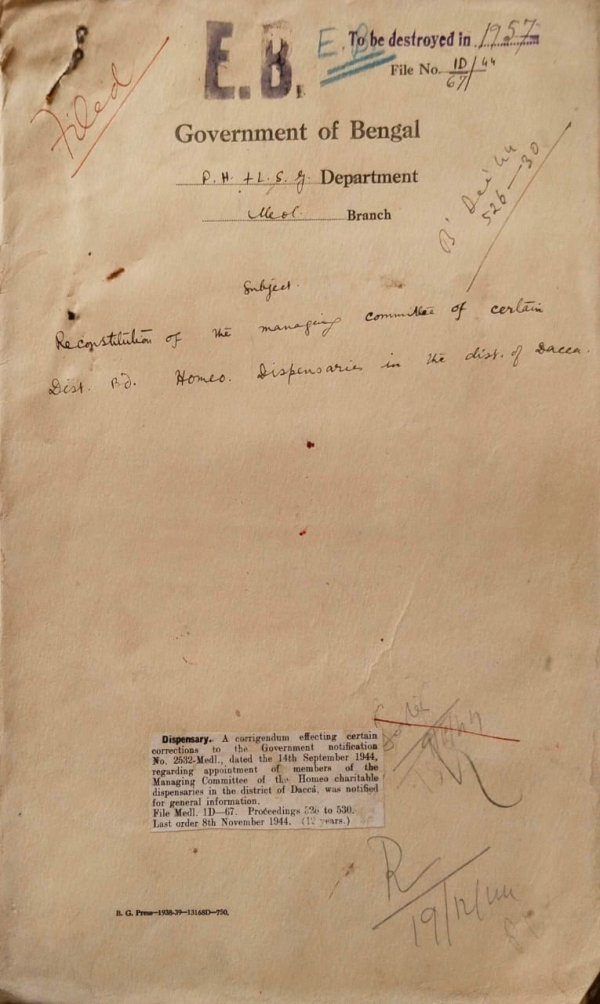 E.B. E.B. To be destroyed in 1957
File No. 1D/67/44
Filed
Government of Bengal
P.H. + L.S.G. Department
Medl. Branch
B' Dec '44
526—30
Subject.
Reconstitution of the managing committee of certain
Dist. Bd. Homeo. Dispensaries in the dist. of Dacca.
Dispensary. A corrigendum effecting certain
corrections to the Government notification
No. 2532-Medl., dated the 14th September 1944,
regarding appointment of members of the
Managing Committee of the Homeo charitable
dispensaries in the district of Dacca, was notified
for general information.
File Medl. 1D—67. Proceedings 526 to 530.
Last order 8th November 1944. (12 years.)
R
19/12/44
B. G. Press—1938-39—13168D—750.